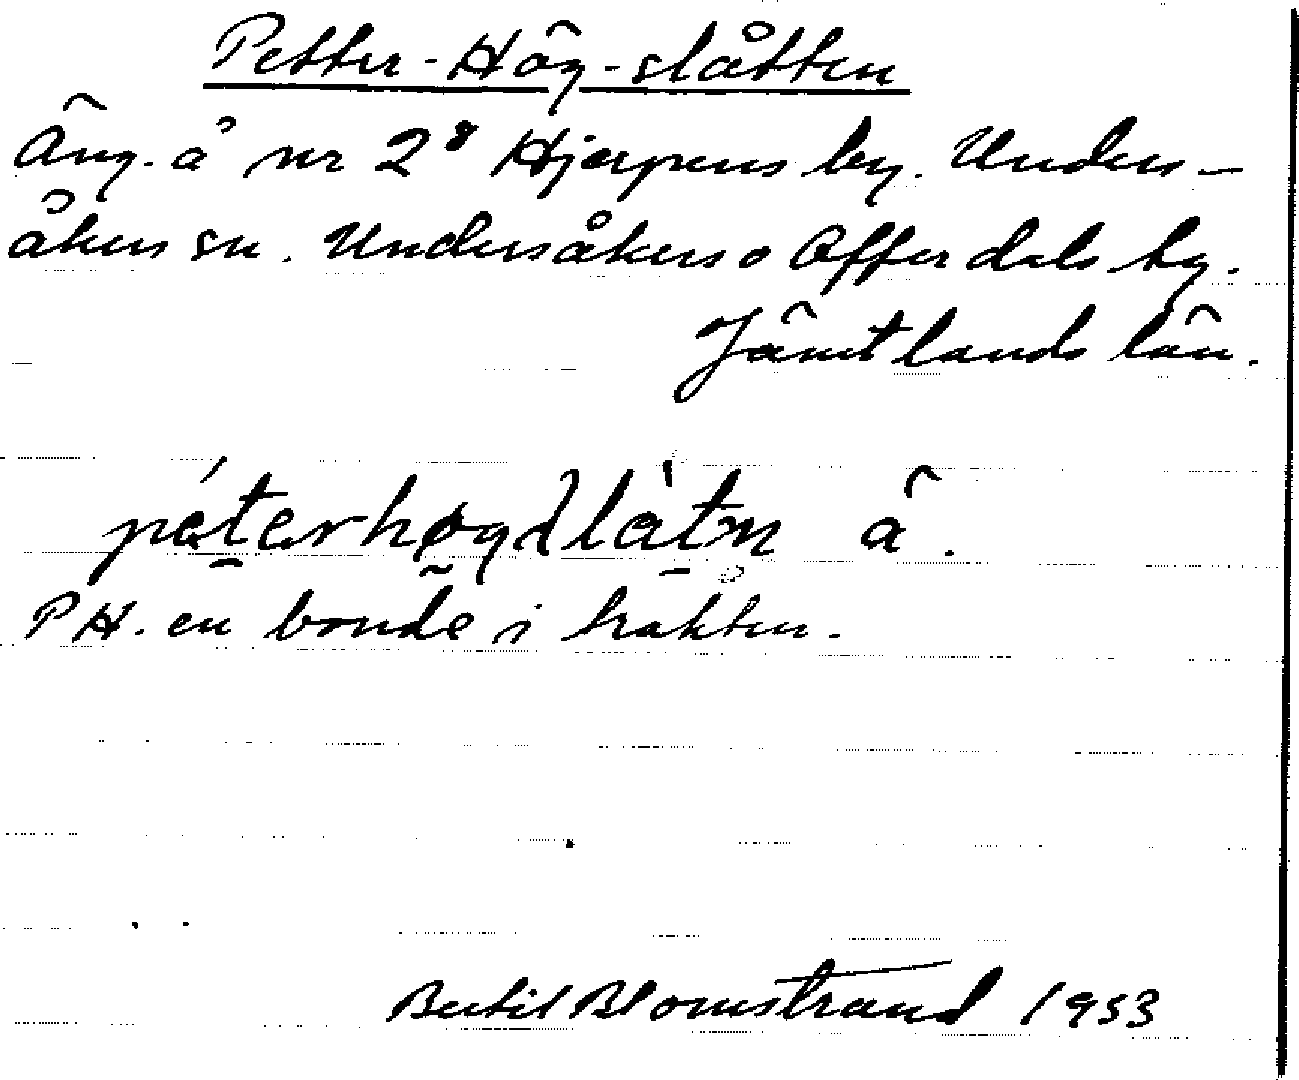 Petter-Hög-slåtten
Äng. å nr 2⁸ Hjerpens by. Unders-
åkers sn. Undersåkers o Offerdals hg.
Jämtlands län.
pétərhøgḍlàtn̥ â.
PH. en bonde i trakten.
Bertil Blomstrand 1933